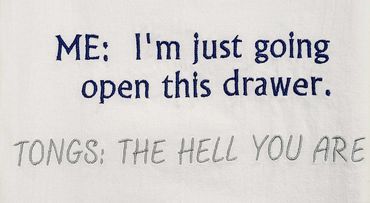 ME: I'm just going
open this drawer.
TONGS: THE HELL YOU ARE